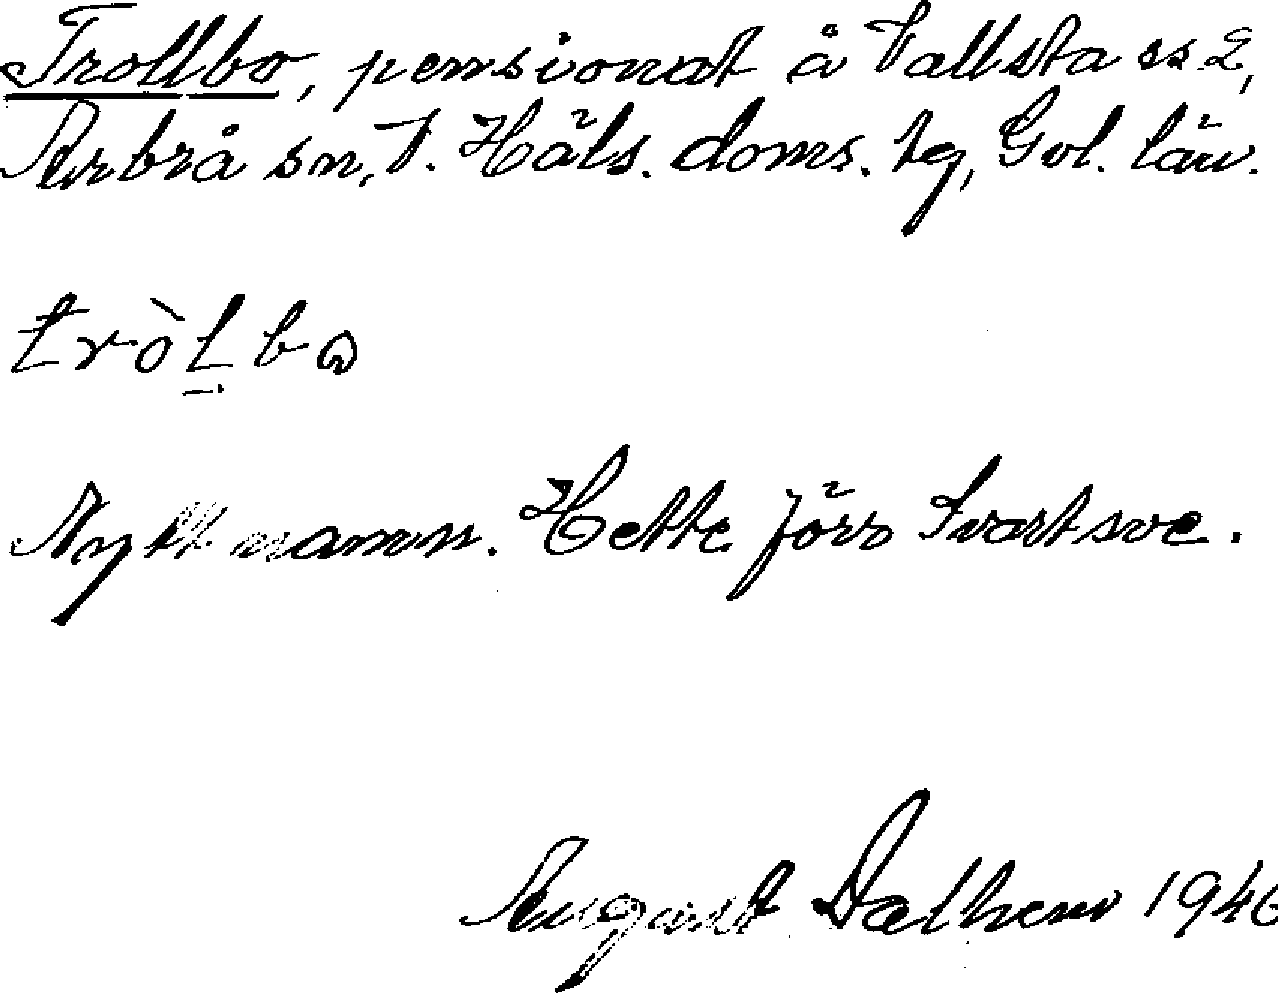 Trollbo, pensionat å Vallsta es 2,
Arbrå sn, V. Häls. doms. tg, Gvl. län.
tròḷbo
Nytt namn. Hette förr Svartsve.
August Dalhem 1946